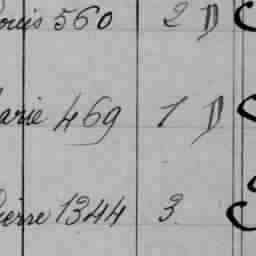 ouis 560 2 D
arie 469 1 D
ierre 1344 3